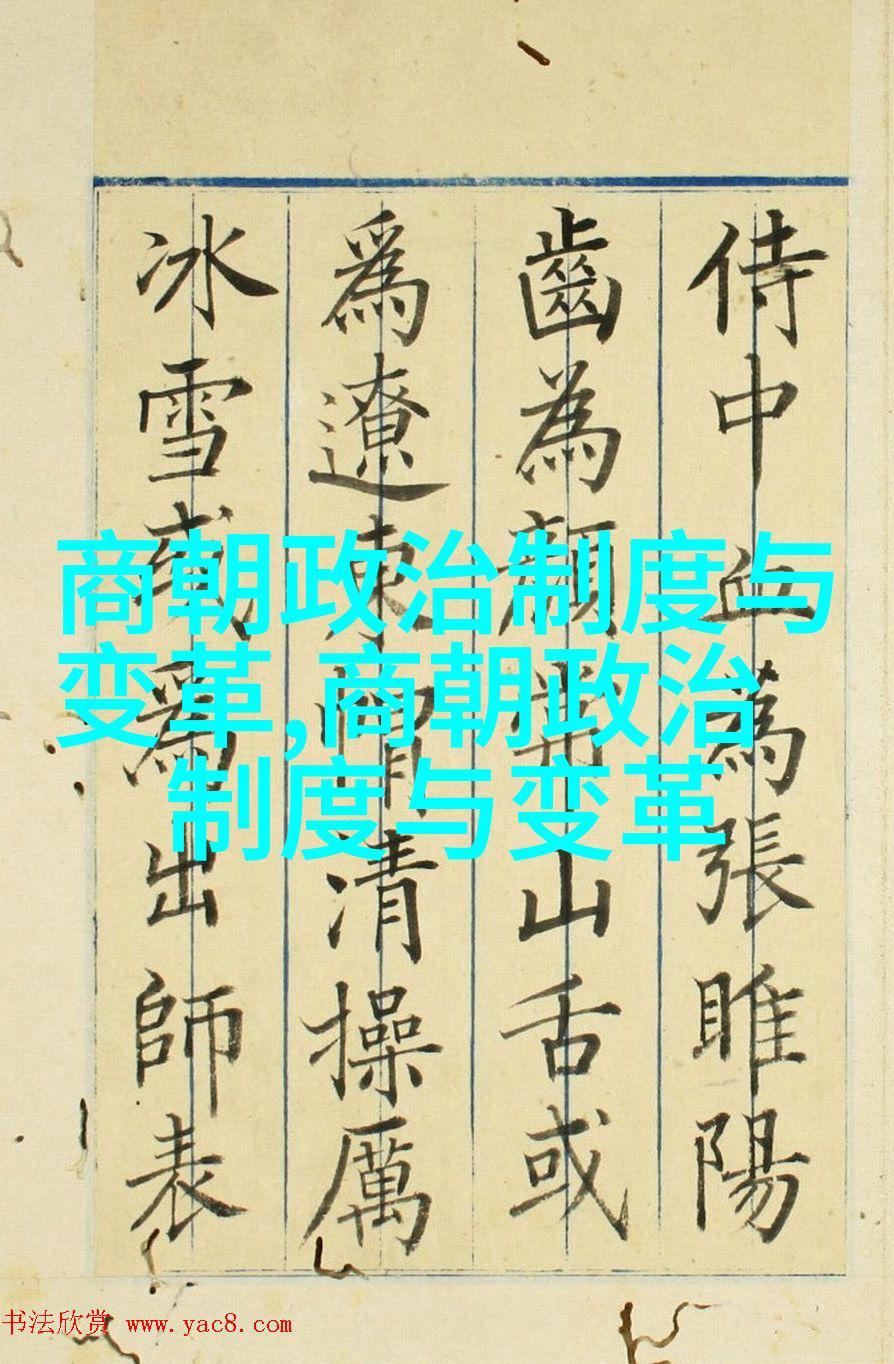 侍中血為張睢陽
齒為顏常山舌或
爲遼東帽清操厲
冰雪或爲出師表
商朝政治制度与
变革,商朝政治
制度与变革
书法欣赏 www.yac8.com